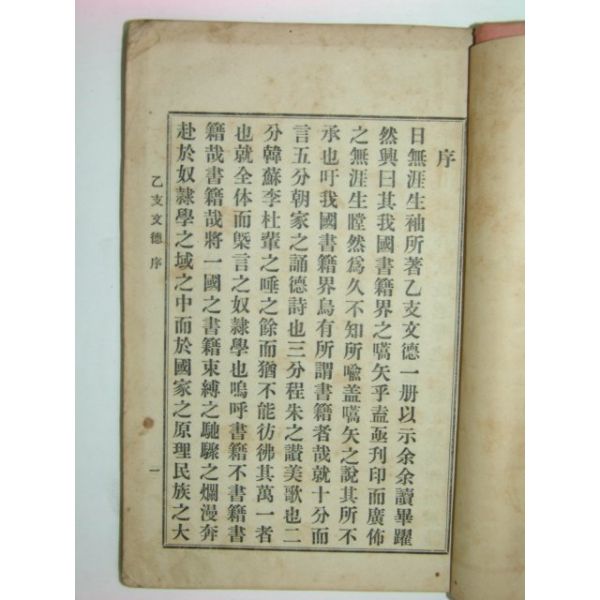 序
日無涯生袖所著乙支文德一册以示余余讀畢躍
然興曰其我國書籍界之嚆矢乎盍亟刊印而廣佈
之無涯生瞠然爲久不知所喩盖嚆矢之說其所不
承也吁我國書籍界烏有所謂書籍者哉就十分而
言五分朝家之誦德詩也三分程朱之讚美歌也二
分韓蘇李杜輩之唾之餘而猶不能彷彿其萬一者
也就全体而槩言之奴隷學也嗚呼書籍不書籍書
籍哉書籍哉將一國之書籍束縛之馳驟之爛漫奔
赴於奴隷學之域之中而於國家之原理民族之大
乙支文德 序
一